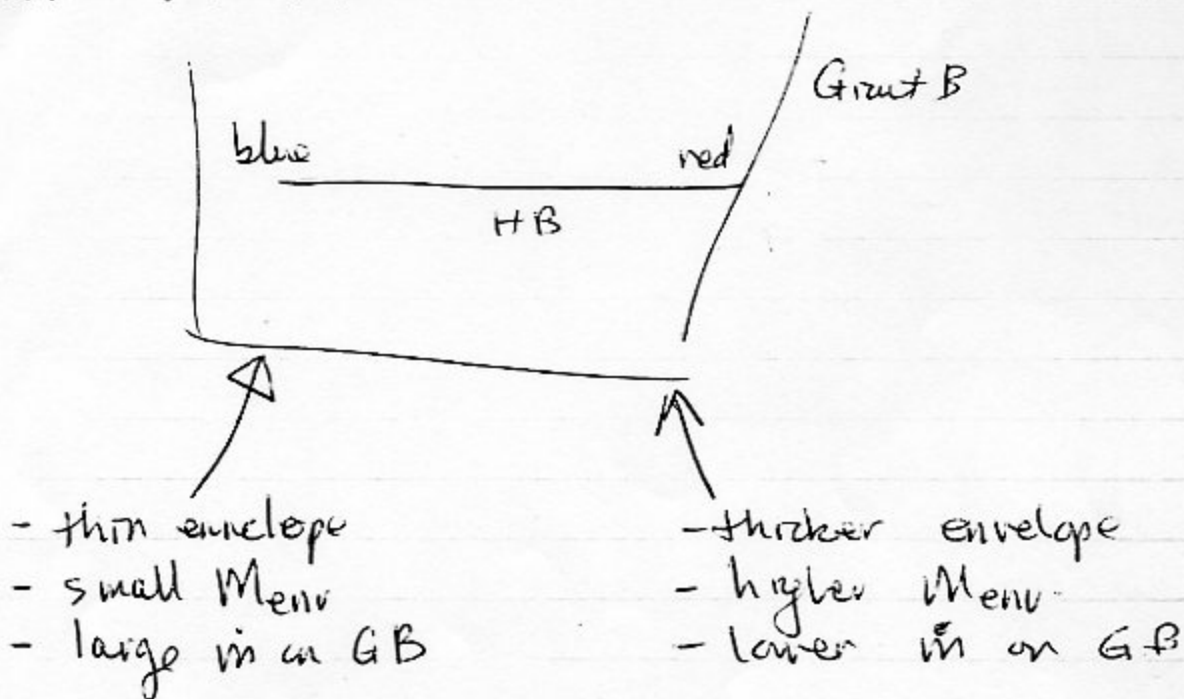 Giant B
blue
red
HB
- thin envelope
- small Menv
- large ṁ on GB
- thicker envelope
- higher Menv
- lower ṁ on GB